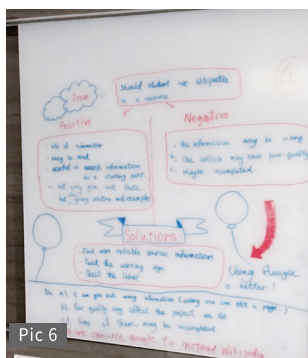 Issue
Should student use Wikipedia
as a resource
Positive
Negative
- lots of information
- easy to read
- useful → search information
as a starting point.
- not only give out facts,
but giving opinions and examples
a. the information may be wrong
b. The article may have poor quality
c. Maybe incompleted.
Solutions
- Find more reliable sources information
- the warning sign
- Check the label
Using Google
is better!
a) If you put wrong information (wrong one can edit a page)
b) Poor quality may affect the project we do
c) Some of them may be incompleted.
we can use google to instead Wikipedia
Pic 6